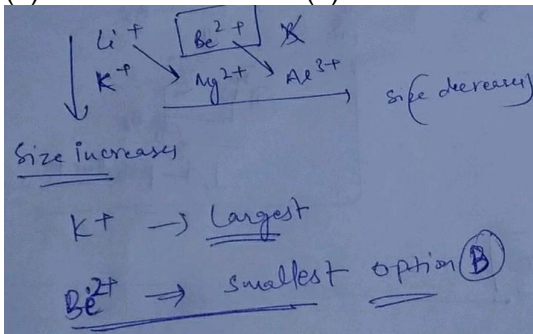 Li+ Be2+ B
K+ Mg2+ Al3+
size decreases
Size increases
K+ → Largest
Be2+ → smallest option B